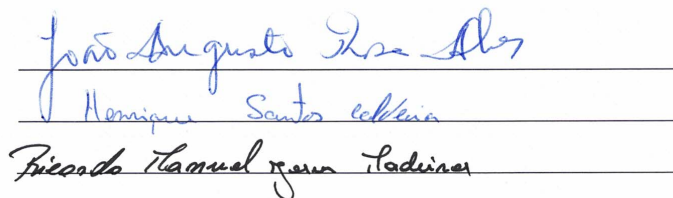 João Augusto Rosa Alves
Henrique Santos Caldeira
Ricardo Manuel Madeira